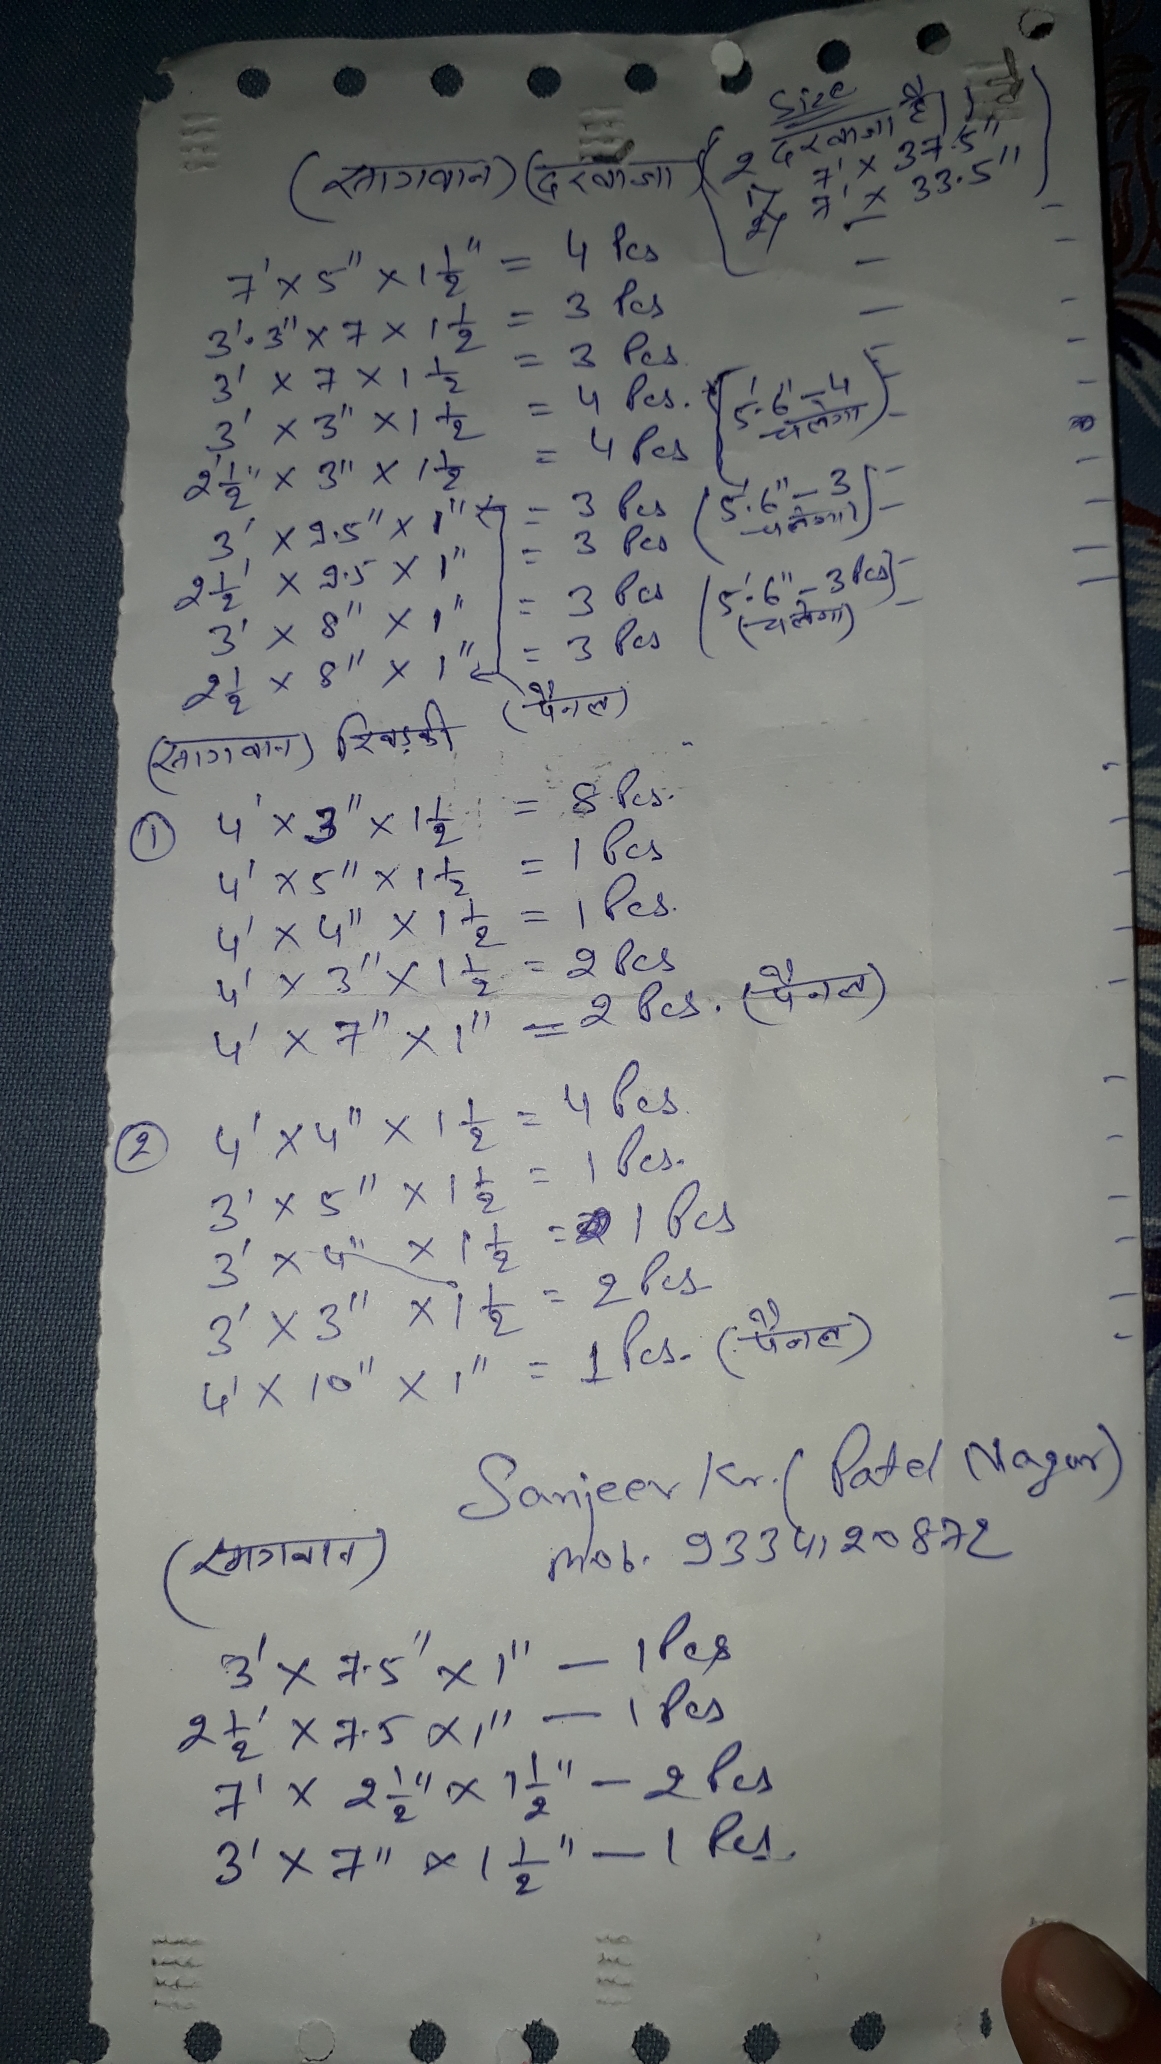 Size
(सागवान) (दरवाजा) 2 दरवाजा है।
1) 7' x 37.5"
2) 7' x 33.5"
7' x 5" x 1 1/2" = 4 Pcs
3'.3" x 7 x 1 1/2 = 3 Pcs
3' x 7 x 1 1/2 = 3 Pcs
3' x 3" x 1 1/2 = 4 Pcs. (5'.6" - 4 चलेगा)
2 1/2" x 3" x 1 1/2 = 4 Pcs
3' x 9.5" x 1" = 3 Pcs (5'.6" - 3 चलेगा)
2 1/2' x 9.5 x 1" = 3 Pcs
3' x 8" x 1" = 3 Pcs (5'.6" - 3 Pcs) (चलेगा)
2 1/2 x 8" x 1" = 3 Pcs
(पैनल)
(सागवान) खिड़की
① 4' x 3" x 1 1/2 = 8 Pcs.
4' x 5" x 1 1/2 = 1 Pcs
4' x 4" x 1 1/2 = 1 Pcs.
4' x 3" x 1 1/2 = 2 Pcs
4' x 7" x 1" = 2 Pcs. (पैनल)
② 4' x 4" x 1 1/2 = 4 Pcs
3' x 5" x 1 1/2 = 1 Pcs.
3' x 4" x 1 1/2 = 1 Pcs
3' x 3" x 1 1/2 = 2 Pcs
4' x 10" x 1" = 1 Pcs. (पैनल)
Sanjeev Kr. (Patel Nagar)
Mob. 9334120872
(सागवान)
3' x 7.5" x 1" - 1 Pcs
2 1/2' x 7.5 x 1" - 1 Pcs
7' x 2 1/2" x 1 1/2" - 2 Pcs
3' x 7" x 1 1/2" - 1 Pcs.